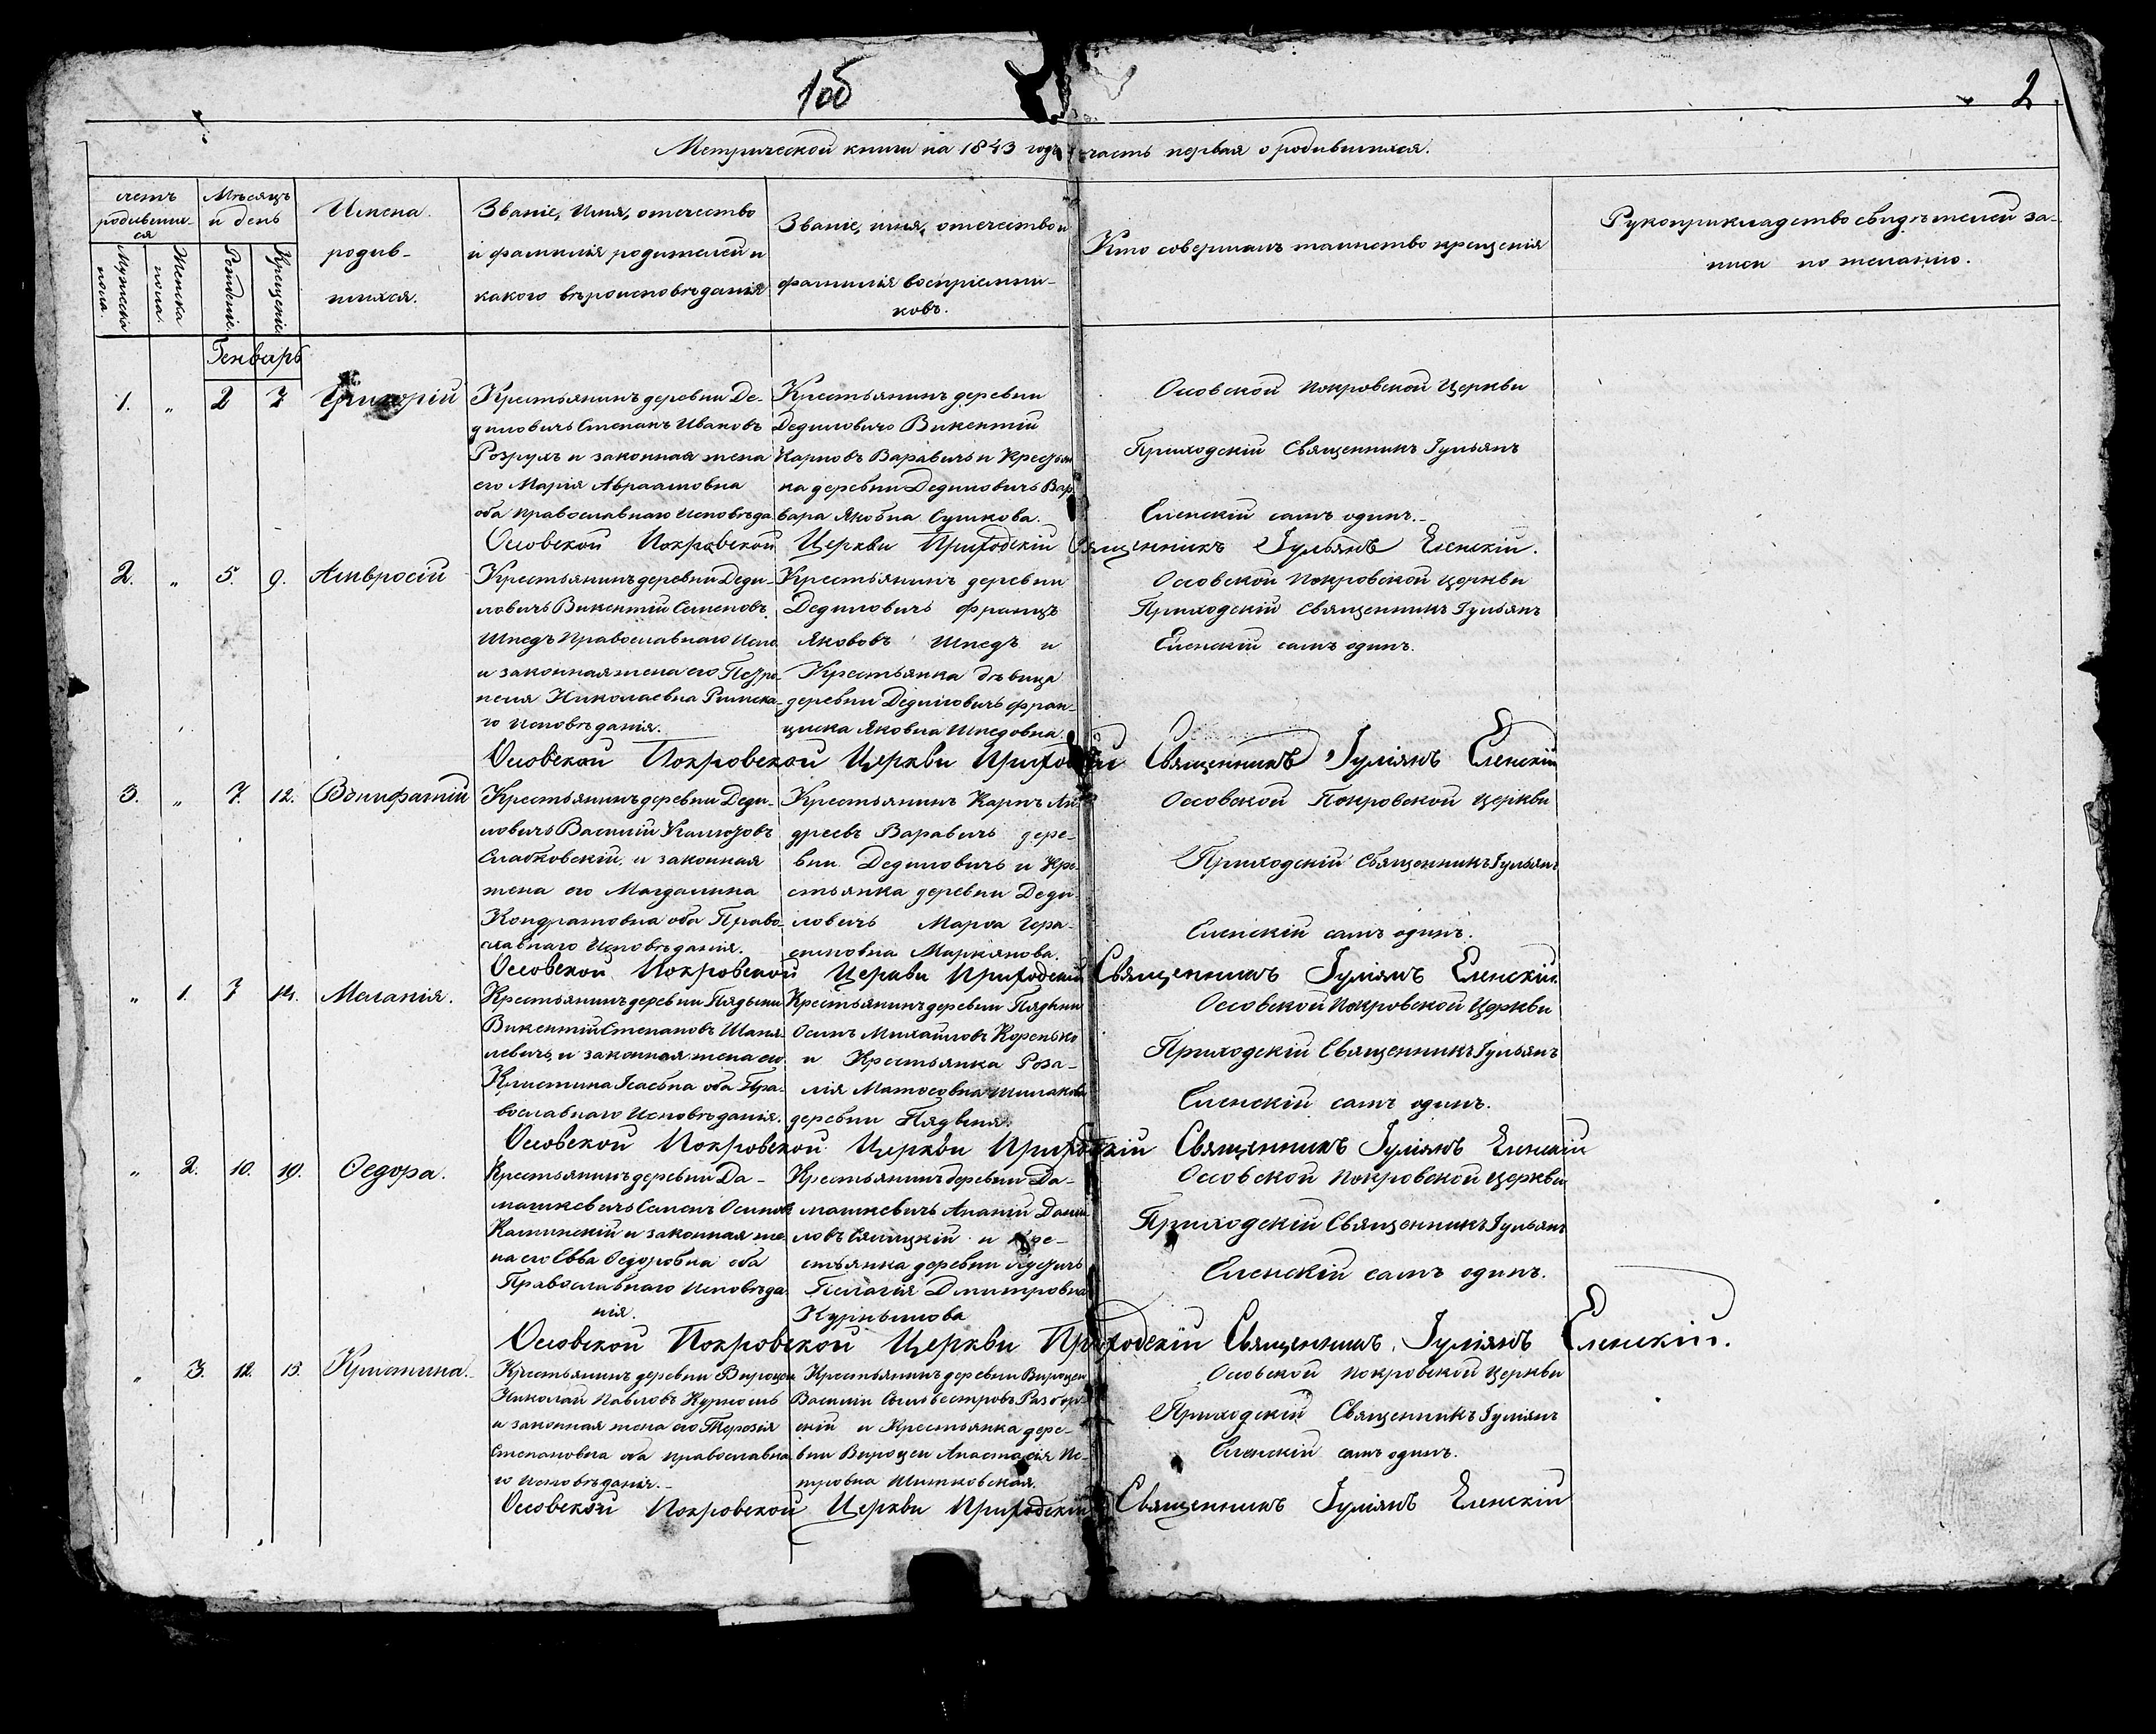 1об
2
Метрической книги на 1843 годъ часть первая о родившихся.
счетъ родившихся
Мужеска пола.
Женска пола.
Мѣсяцъ и день
Рожденіе.
Крещеніе
Имена.
родив-
шихся.
Званіе, имя, отечество
и фамилія родителей и
какого вѣроисповѣданія
Званіе, имя, отечество и
фамилія воспріемни-
ковъ.
Кто совершилъ таинство крещенія
Рукоприкладство свидѣтелей за-
писи по желанію.
Генварь
1. " 2 7 Григорій
Крестьянинъ деревни Де-
диловичъ Степанъ Ивановъ
и законная жена
его Марія Авраамовна
оба православнаго исповѣда.
Крестьянинъ деревни
Дедиловичъ Викентій
Карповъ Варавичъ и Крестьян
ка деревни Дедиловичъ Вар
вара Яковна Сушкова.
Оссовской Покровской Церкви
Приходскій Священникъ Іульянъ
Еленскій самъ одинъ.-
Осовской Покровской Церкви Приходскій Священникъ Іульянъ Еленскій.
2. " 5. 9. Амвросій
Крестьянинъ деревни Деди-
ловичъ Викентій Семеновъ
Шпедъ Православнаго Испо.
и законная жена его Петро-
неля Николаевна Римска-
го исповѣданія.
Крестьянинъ деревни
Дедиловичъ Францъ
Якововъ Шпедъ и
Крестьянка дѣвица
деревни Дедиловичъ Фран-
циска Яковна Шпедовна.
Оссовской Покровской Церкви
Приходскій Священникъ Іульянъ
Еленскій самъ одинъ.
Осовской Покровской Церкви Приходскій Священникъ Іуліянъ Еленскій
3. " 7. 12. Вонифатій
Крестьянинъ деревни Деди-
ловичъ Василій
Слабковскій и законная
жена его Магдалина
Кондратовна оба Право-
славнаго Исповѣданія.
Крестьянинъ Карпъ Ан-
дреевъ Варавичъ дере-
вни Дедиловичъ и Кре-
стьянка деревни Деди-
ловичъ Марѳа Гера-
симовна Маркянова.
Оссовской Покровской Церкви
Приходскій Священникъ Іульянъ
Еленскій самъ одинъ.
Осовской Покровской Церкви Приходскій Священникъ Іуліянъ Еленскій.
" 1. 7 14. Меланія.
Крестьянинъ деревни Пядѣни
Викентій Степановъ Шаня-
левичъ и законная жена его
Клистина Исаевна оба Пра-
вославнаго Исповѣданія.
Крестьянинъ деревни Пядѣни
Осипъ Михайловъ Коренько
и Крестьянка Роза-
лія Матѳеовна
деревни Пядѣня.
Оссовской Покровской Церкви
Приходскій Священникъ Іульянъ
Еленскій самъ одинъ.
Осовской Покровской Церкви Приходскій Священникъ Іуліянъ Еленскій
" 2. 10. 10. Ѳедора.
Крестьянинъ деревни Да-
машкевичъ Семенъ Осиповъ
Калинскій и законная же
на его Евва Ѳедоровна оба
Православнаго исповѣда-
нія.
Крестьянинъ деревни Да-
машкевичъ Ананій Данил
ловъ и Кре-
стьянка деревни
Пелагія Дмитровна
Оссовской Покровской Церкви
Приходскій Священникъ Іульянъ
Еленскій самъ одинъ.
Осовской Покровской Церкви Приходскій Священникъ Іуліянъ Еленскій.
" 3. 12. 13. Кристина.
Крестьянинъ деревни Вироцеи
Николай Павловъ
и законная жена его Терезія
Степановна оба православна
го исповѣданія.-
Крестьянинъ деревни Вироцеи
Василій Сильвестровъ
скій и Крестьянка дере-
вни Вироцеи Анастасія Пе-
тровна Шитковская.
Осовской Покровской Церкви
Приходскій Священникъ Іуліянъ
Еленскій самъ одинъ.
Осовской Покровской Церкви Приходскій Священникъ Іуліянъ Еленскій